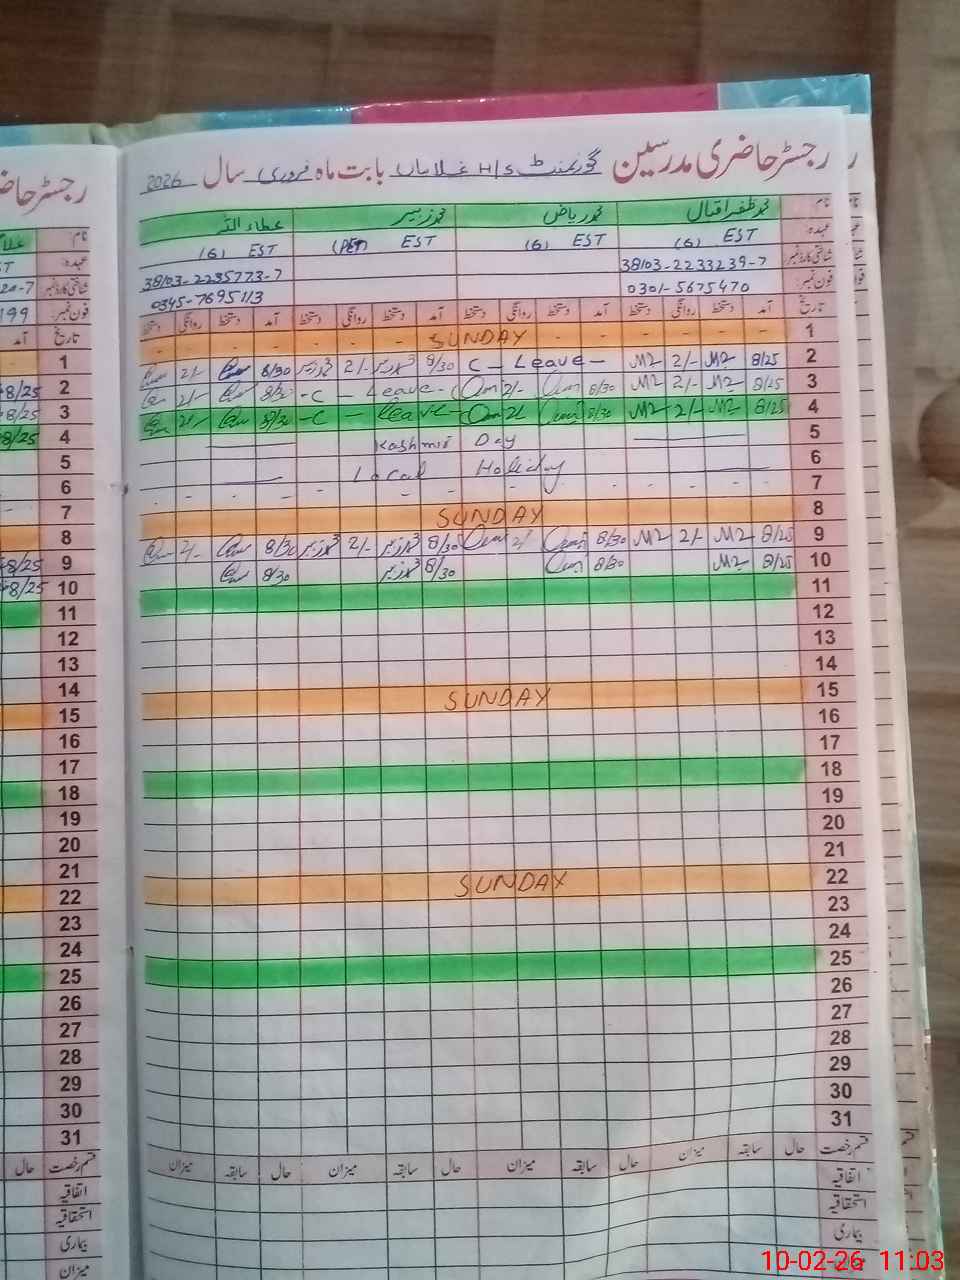 رجسٹر حاضری مدرسین گورنمنٹ H/S غلاماں بابت ماہ فروری سال 2026
نام محمد ظفر اقبال محمد ریاض محمد زبیر عطاء اللہ
عہدہ: EST (G) EST (G) EST (PET) EST (G)
شناختی کارڈ نمبر: 38103-2233239-7 38103-2235773-7
فون نمبر: 0301-5675470 0345-7695113
تاریخ آمد دستخط روانگی دستخط آمد دستخط روانگی دستخط آمد دستخط روانگی دستخط آمد دستخط روانگی دستخط
1 SUNDAY
2 8/25 2/- C - Leave - 8/30 محمد زبیر 2/- محمد زبیر 8/30 2/-
3 8/25 2/- 8/30 2/- - C - Leave - 8/30 2/-
4 8/25 2/- 8/30 2/- - C - Leave - 8/30 2/-
5 Kashmir Day
6 Local Holiday
7
8 SUNDAY
9 8/25 2/- 8/30 2/- 8/30 محمد زبیر 2/- محمد زبیر 8/30 2/-
10 8/25 8/30 8/30 محمد زبیر 8/30
11
12
13
14
15 SUNDAY
16
17
18
19
20
21
22 SUNDAY
23
24
25
26
27
28
29
30
31
قسم رخصت حال سابقہ میزان حال سابقہ میزان حال سابقہ میزان حال سابقہ میزان
اتفاقیہ
استحقاقیہ
بیماری
رجسٹر
نام:
عہدہ:
شناختی کارڈ نمبر:
فون نمبر: 199
تاریخ آمد
1
2 8/25
3 8/25
4 8/25
5
6
7
8
9 8/25
10 8/25
11
12
13
14
15
16
17
18
19
20
21
22
23
24
25
26
27
28
29
30
31
قسم رخصت حال
اتفاقیہ
استحقاقیہ
بیماری
میزان
10-02-26 11:03